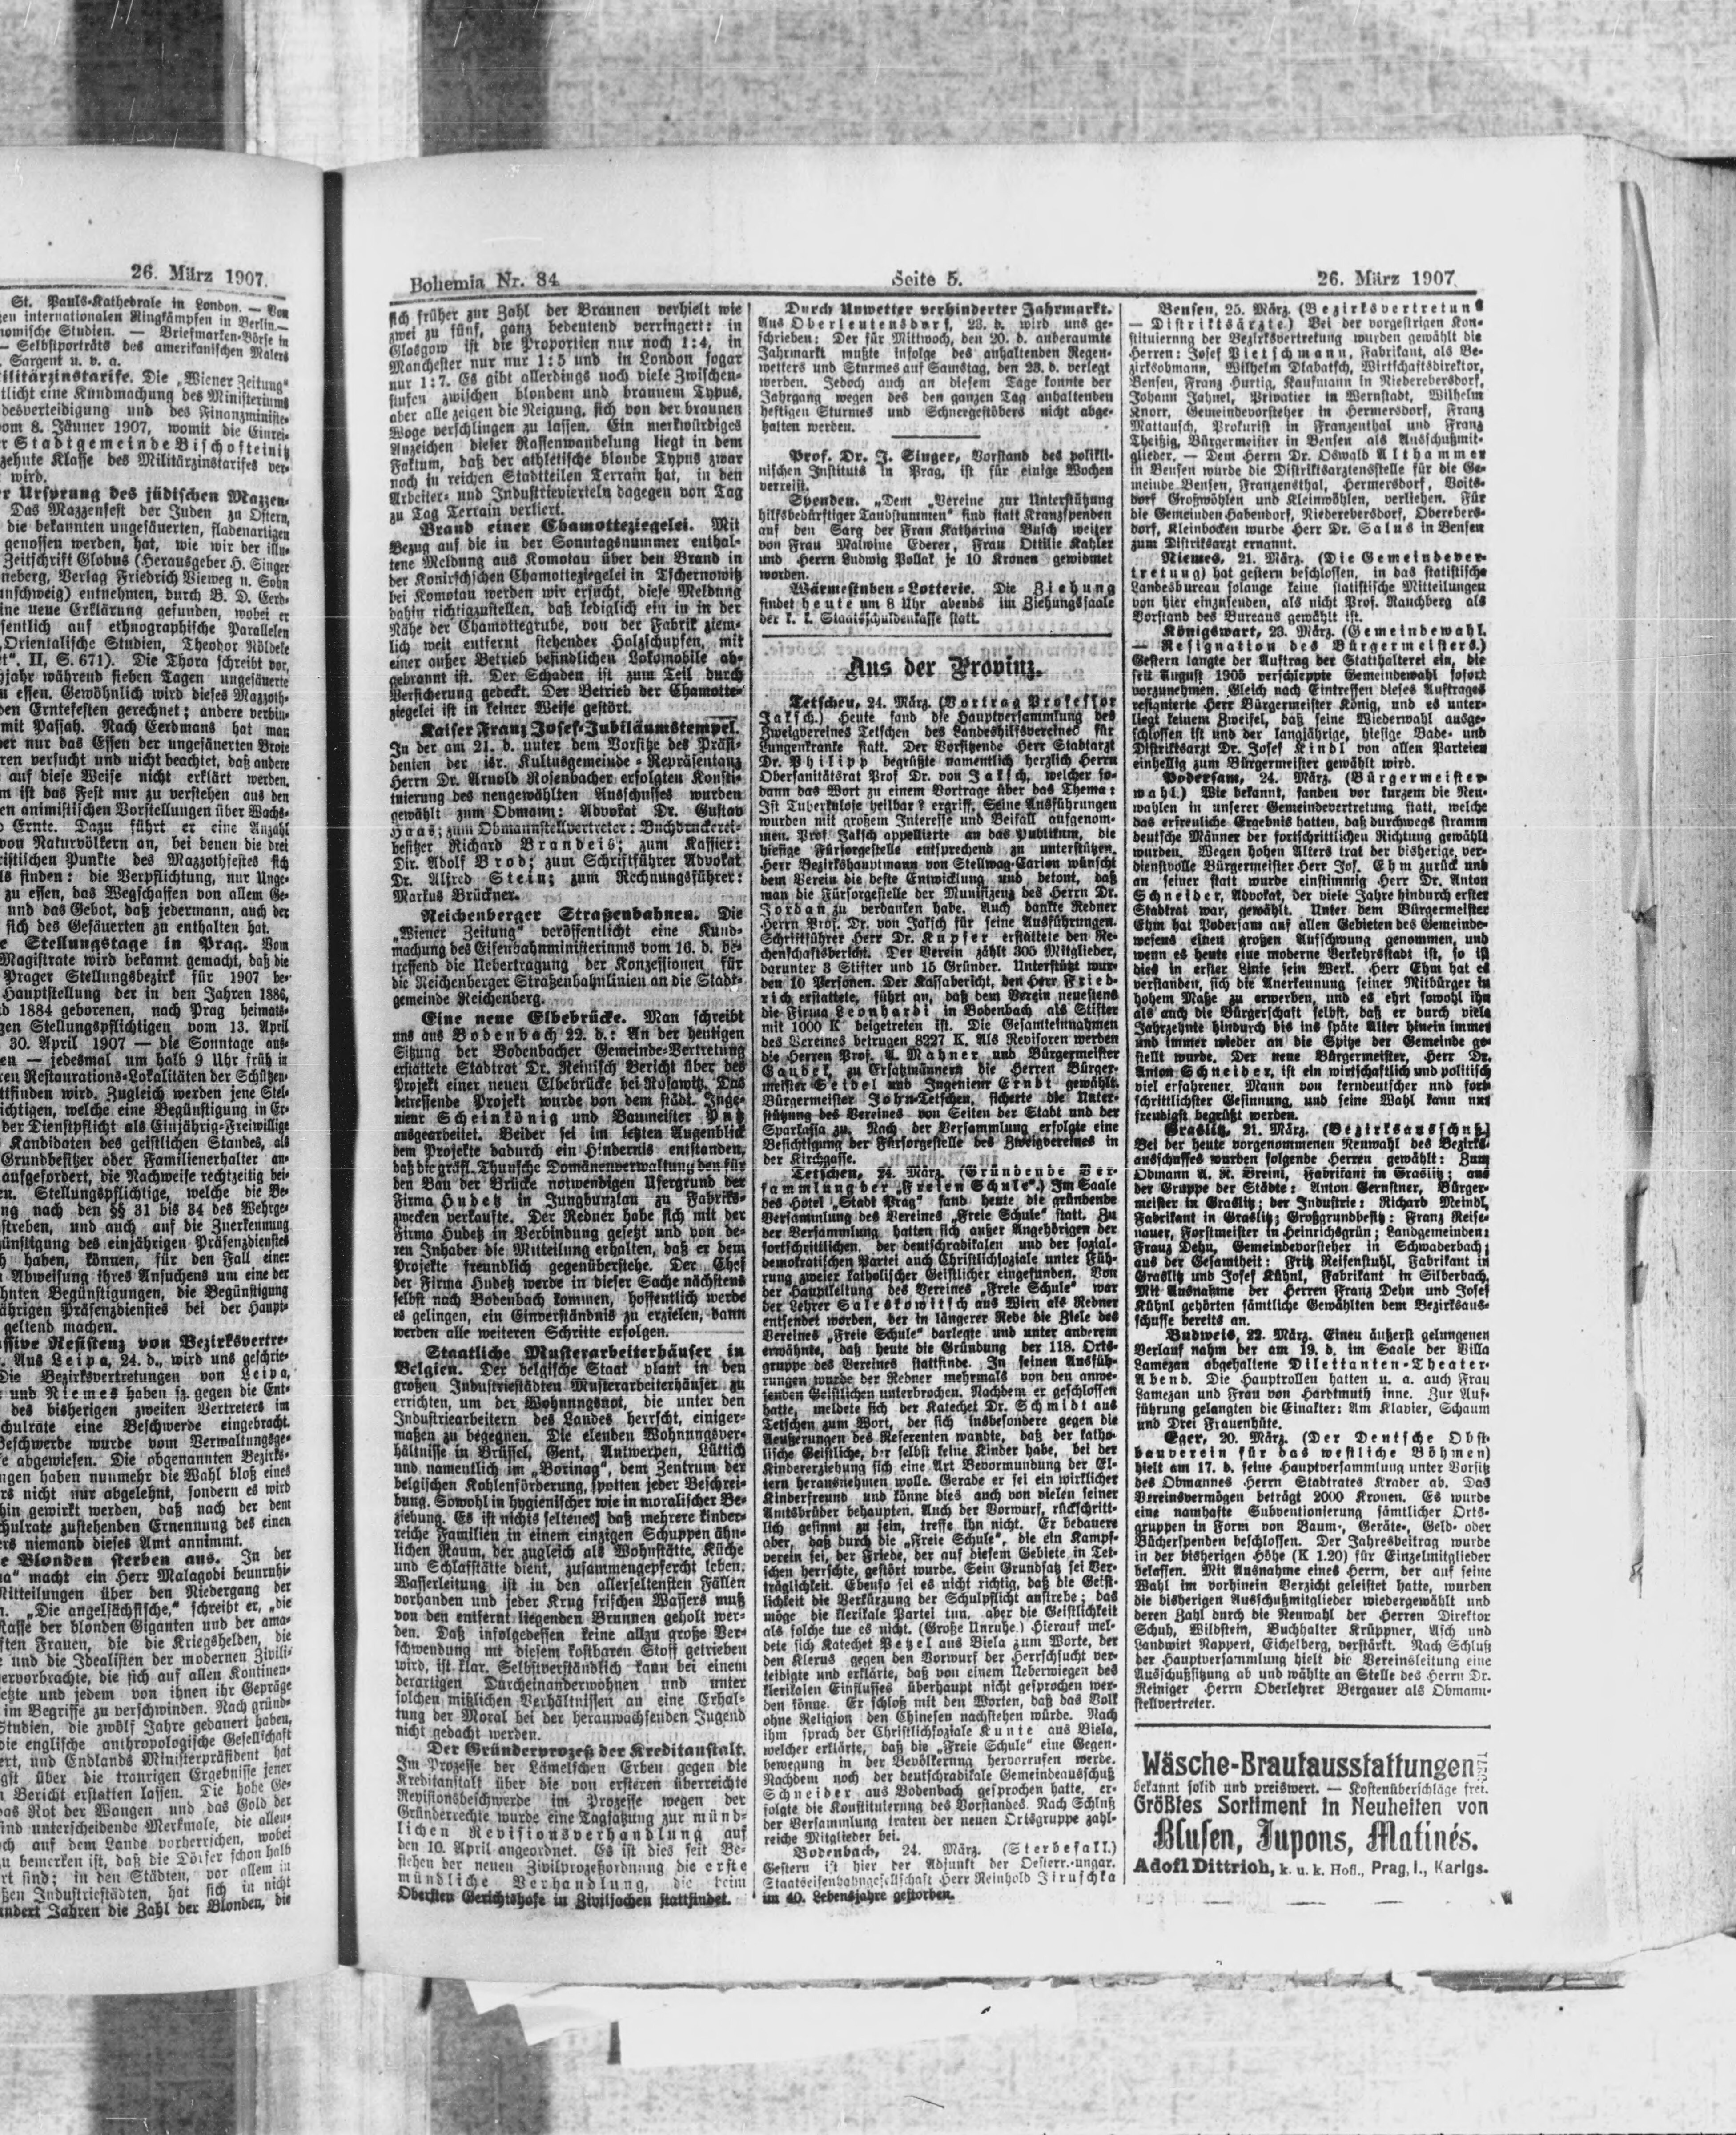 26. März 1907.
St. Pauls-Kathedrale in London. — Von
internationalen Ringkämpfen in Berlin.—
nomische Studien. — Briefmarken-Börse in
— Selbstporträts des amerikanischen Malers
Sargent u. v. a.
Die „Wiener Zeitung“
eine Kundmachung des Ministeriums
und des Finanzministe-
vom 8. Jänner 1907, womit die Einrei-
Stadtgemeinde Bischofteinitz
zehnte Klasse des Militärzinstarifes ver-
wird.
Ursprung des jüdischen Mazzen-
Das Mazzenfest der Juden zu Ostern,
die bekannten ungesäuerten, fladenartigen
genossen werden, hat, wie wir der illu-
Zeitschrift Globus (Herausgeber H. Singer
Verlag Friedrich Vieweg u. Sohn
entnehmen, durch B. D. Eerd-
eine neue Erklärung gefunden, wobei er
auf ethnographische Parallelen
Orientalische Studien, Theodor Nöldeke
II, S. 671). Die Thora schreibt vor,
während sieben Tagen ungesäuerte
essen. Gewöhnlich wird dieses Mazzoth-
den Erntefesten gerechnet; andere verbin-
mit Passah. Nach Eerdmans hat man
nur das Essen der ungesäuerten Brote
versucht und nicht beachtet, daß andere
auf diese Weise nicht erklärt werden.
ist das Fest nur zu verstehen aus den
animistischen Vorstellungen über Wachs-
Ernte. Dazu führt er eine Anzahl
von Naturvölkern an, bei denen die drei
Punkte des Mazzothfestes sich
finden: die Verpflichtung, nur Unge-
zu essen, das Wegschaffen von allem Ge-
und das Gebot, daß jedermann, auch der
sich des Gesäuerten zu enthalten hat.
Stellungstage in Prag. Vom
Magistrate wird bekannt gemacht, daß die
Prager Stellungsbezirk für 1907 be-
Hauptstellung der in den Jahren 1886,
1884 geborenen, nach Prag heimats-
Stellungspflichtigen vom 13. April
30. April 1907 — die Sonntage aus-
— jedesmal um halb 9 Uhr früh in
Restaurations-Lokalitäten der Schützen-
stattfinden wird. Zugleich werden jene Stel-
welche eine Begünstigung in Er-
der Dienstpflicht als Einjährig-Freiwillige
Kandidaten des geistlichen Standes, als
Grundbesitzer oder Familienerhalter an-
aufgefordert, die Nachweise rechtzeitig bei-
Stellungspflichtige, welche die Be-
nach den §§ 31 bis 34 des Wehrge-
und auch auf die Zuerkennung
des einjährigen Präsenzdienstes
haben, können, für den Fall einer
Abweisung ihres Ansuchens um eine der
Begünstigungen, die Begünstigung
Präsenzdienstes bei der Haupt-
geltend machen.
Resistenz von Bezirksvertre-
Aus Leipa, 24. d., wird uns geschrie-
Die Bezirksvertretungen von Leipa,
und Niemes haben sz. gegen die Ent-
des bisherigen zweiten Vertreters im
eine Beschwerde eingebracht.
Beschwerde wurde vom Verwaltungsge-
abgewiesen. Die obgenannten Bezirks-
haben nunmehr die Wahl bloß eines
nicht nur abgelehnt, sondern es wird
gewirkt werden, daß nach der dem
zustehenden Ernennung des einen
niemand dieses Amt annimmt.
Blonden sterben aus. In der
macht ein Herr Malagodi beunruhi-
Mitteilungen über den Niedergang der
„Die angelsächsische,“ schreibt er, „die
Rasse der blonden Giganten und der ama-
Frauen, die die Kriegshelden, die
und die Idealisten der modernen Zivili-
hervorbrachte, die sich auf allen Kontinen-
und jedem von ihnen ihr Gepräge
im Begriffe zu verschwinden. Nach gründ-
Studien, die zwölf Jahre gedauert haben,
die englische anthropologische Gesellschaft
und Englands Ministerpräsident hat
über die traurigen Ergebnisse jener
Bericht erstatten lassen. Die hohe Ge-
das Rot der Wangen und das Gold der
sind unterscheidende Merkmale, die allen-
auf dem Lande vorherrschen, wobei
zu bemerken ist, daß die Dörfer schon halb
sind; in den Städten, vor allem in
Industriestädten, hat sich in nicht
hundert Jahren die Zahl der Blonden, die
Bohemia Nr. 84
Seite 5.
26. März 1907.
sich früher zur Zahl der Braunen verhielt wie
zwei zu fünf, ganz bedeutend verringert: in
Glasgow ist die Proportien nur noch 1:4, in
Manchester nur nur 1:5 und in London sogar
nur 1:7. Es gibt allerdings noch viele Zwischen-
stufen zwischen blondem und braunem Typus,
aber alle zeigen die Neigung, sich von der braunen
Woge verschlingen zu lassen. Ein merkwürdiges
Anzeichen dieser Rassenwandelung liegt in dem
Faktum, daß der athletische blonde Typus zwar
noch in reichen Stadtteilen Terrain hat, in den
Arbeiter- und Industrievierteln dagegen von Tag
zu Tag Terrain verliert.
Brand einer Chamotteziegelei. Mit
Bezug auf die in der Sonntagsnummer enthal-
tene Meldung aus Komotau über den Brand in
der Konirschschen Chamotteziegelei in Tschernowitz
bei Komotau werden wir ersucht, diese Meldung
dahin richtigzustellen, daß lediglich ein in in der
Nähe der Chamottegrube, von der Fabrik ziem-
lich weit entfernt stehender Holzschupfen, mit
einer außer Betrieb befindlichen Lokomobile ab-
gebrannt ist. Der Schaden ist zum Teil durch
Versicherung gedeckt. Der Betrieb der Chamotte-
ziegelei ist in keiner Weise gestört.
Kaiser Franz Josef-Jubiläumstempel.
In der am 21. d. unter dem Vorsitze des Präsi-
denten der isr. Kultusgemeinde-Repräsentanz
Herrn Dr. Arnold Rosenbacher erfolgten Konsti-
tuierung des neugewählten Ausschusses wurden
gewählt zum Obmann: Advokat Dr. Gustav
Haas; zum Obmannstellvertreter: Buchdruckerei-
besitzer Richard Brandeis; zum Kassier:
Dir. Adolf Brod; zum Schriftführer Advokat
Dr. Alfred Stein; zum Rechnungsführer:
Markus Brückner.
Reichenberger Straßenbahnen. Die
„Wiener Zeitung“ veröffentlicht eine Kund-
machung des Eisenbahnministeriums vom 16. d. be-
treffend die Uebertragung der Konzessionen für
die Reichenberger Straßenbahnlinien an die Stadt-
gemeinde Reichenberg.
Eine neue Elbebrücke. Man schreibt
uns aus Bodenbach 22. d.: An der heutigen
Sitzung der Bodenbacher Gemeinde-Vertretung
erstattete Stadtrat Dr. Reinisch Bericht über des
Projekt einer neuen Elbebrücke bei Rosawitz. Das
betreffende Projekt wurde von dem städt. Inge-
nieur Scheinkönig und Baumeister Putz
ausgearbeitet. Beider sei im letzten Augenblick
dem Projekte dadurch ein Hindernis entstanden,
daß die gräfl. Thunsche Domänenverwaltung den für
den Bau der Brücke notwendigen Ufergrund der
Firma Hudetz in Jungbunzlau zu Fabriks-
zwecken verkaufte. Der Redner habe sich mit der
Firma Hudetz in Verbindung gesetzt und von de-
ren Inhaber die Mitteilung erhalten, daß er dem
Projekte freundlich gegenüberstehe. Der Chef
der Firma Hudetz werde in dieser Sache nächstens
selbst nach Bodenbach kommen, hoffentlich werde
es gelingen, ein Einverständnis zu erzielen, dann
werden alle weiteren Schritte erfolgen.
Staatliche Musterarbeiterhäuser in
Belgien. Der belgische Staat plant in den
großen Industriestädten Musterarbeiterhäuser zu
errichten, um der Wohnungsnot, die unter den
Industriearbeitern des Landes herrscht, einiger-
maßen zu begegnen. Die elenden Wohnungsver-
hältnisse in Brüssel, Gent, Antwerpen, Lüttich
und namentlich im „Borinag“, dem Zentrum der
belgischen Kohlenförderung, spotten jeder Beschrei-
bung. Sowohl in hygienischer wie in moralischer Be-
ziehung. Es ist nichts seltenes, daß mehrere kinder-
reiche Familien in einem einzigen Schuppen ähn-
lichen Raum, der zugleich als Wohnstätte, Küche
und Schlafstätte dient, zusammengepfercht leben.
Wasserleitung ist in den allerseltensten Fällen
vorhanden und jeder Krug frischen Wassers muß
von den entfernt liegenden Brunnen geholt wer-
den. Daß infolgedessen keine allzu große Ver-
schwendung mit diesem kostbaren Stoff getrieben
wird, ist klar. Selbstverständlich kann bei einem
derartigen Durcheinanderwohnen und unter
solchen mißlichen Verhältnissen an eine Erhal-
tung der Moral bei der heranwachsenden Jugend
nicht gedacht werden.
Der Gründerprozeß der Kreditanstalt.
Im Prozesse der Lämelschen Erben gegen die
Kreditanstalt über die von ersteren überreichte
Revisionsbeschwerde im Prozesse wegen der
Gründerrechte wurde eine Tagsatzung zur münd-
lichen Revisionsverhandlung auf
den 10. April angeordnet. Es ist dies seit Be-
stehen der neuen Zivilprozeßordnung die erste
mündliche Verhandlung, die beim
Obersten Gerichtshofe in Zivilsachen stattfindet.
Durch Unwetter verhinderter Jahrmarkt.
Aus Oberleutensdorf, 23. d. wird uns ge-
schrieben: Der für Mittwoch, den 20. d. anberaumte
Jahrmarkt mußte infolge des anhaltenden Regen-
wetters und Sturmes auf Samstag, den 23. d. verlegt
werden. Jedoch auch an diesem Tage konnte der
Jahrgang wegen des den ganzen Tag anhaltenden
heftigen Sturmes und Schneegestöbers nicht abge-
halten werden.
Prof. Dr. J. Singer, Vorstand des polikli-
nischen Instituts in Prag, ist für einige Wochen
verreist.
Spenden. „Dem „Vereine zur Unterstützung
hilfsbedürftiger Taubstummen“ sind statt Kranzspenden
auf den Sarg der Frau Katharina Busch weiter
von Frau Malwine Ederer, Frau Ottilie Kahler
und Herrn Ludwig Pollak je 10 Kronen gewidmet
worden.
Wärmestuben-Lotterie. Die Ziehung
findet heute um 8 Uhr abends im Ziehungssaale
der k. k. Staatsschuldenkasse statt.
Aus der Provinz.
Tetschen, 24. März. (Vortrag Professor
Jaksch.) Heute fand die Hauptversammlung des
Zweigvereines Tetschen des Landeshilfsvereines für
Lungenkranke statt. Der Vorsitzende Herr Stadtarzt
Dr. Philipp begrüßte namentlich herzlich Herrn
Obersanitätsrat Prof Dr. von Jaksch, welcher so-
dann das Wort zu einem Vortrage über das Thema:
Ist Tuberkulose heilbar? ergriff. Seine Ausführungen
wurden mit großem Interesse und Beifall aufgenom-
men. Prof. Jaksch appellierte an das Publikum, die
hiesige Fürsorgestelle entsprechend zu unterstützen.
Herr Bezirkshauptmann von Stellwag-Carion wünscht
dem Verein die beste Entwicklung und betont, daß
man die Fürsorgestelle der Munifizenz des Herrn Dr.
Jordan zu verdanken habe. Auch dankte Redner
Herrn Prof. Dr. von Jaksch für seine Ausführungen.
Schriftführer Herr Dr. Kupfer erstattete den Re-
chenschaftsbericht. Der Verein zählt 305 Mitglieder,
darunter 3 Stifter und 15 Gründer. Unterstützt wur-
den 10 Personen. Der Kassabericht, den Herr Fried-
rich erstattete, führt an, daß dem Verein neuestens
die Firma Leonhardi in Bodenbach als Stifter
mit 1000 K beigetreten ist. Die Gesamteinnahmen
des Vereines betrugen 8227 K. Als Revisoren werden
die Herren Prof. A. Mahner und Bürgermeister
Gaudek, zu Ersatzmännern die Herren Bürger-
meister Seidel und Ingenieur Erndt gewählt.
Bürgermeister John-Tetschen, sicherte die Unter-
stützung des Vereines von Seiten der Stadt und der
Sparkassa zu. Nach der Versammlung erfolgte eine
Besichtigung der Fürsorgestelle des Zweigvereines in
der Kirchgasse.
Tetschen, 24. März. (Gründende Ver-
sammlung der „Freien Schule“.) Im Saale
des Hotel „Stadt Prag“ fand heute die gründende
Versammlung des Vereines „Freie Schule“ statt. Zu
der Versammlung hatten sich außer Angehörigen der
fortschrittlichen, der deutschradikalen und der sozial-
demokratischen Partei auch Christlichsoziale unter Füh-
rung zweier katholischer Geistlicher eingefunden. Von
der Hauptleitung des Vereines „Freie Schule“ war
der Lehrer Saleskowitsch aus Wien als Redner
entsendet worden, der in längerer Rede die Ziele des
Vereines „Freie Schule“ darlegte und unter anderem
erwähnte, daß heute die Gründung der 118. Orts-
gruppe des Vereines stattfinde. In seinen Ausfüh-
rungen wurde der Redner mehrmals von den anwe-
senden Geistlichen unterbrochen. Nachdem er geschlossen
hatte, meldete sich der Katechet Dr. Schmidt aus
Tetschen zum Wort, der sich insbesondere gegen die
Aeußerungen des Referenten wandte, daß der katho-
lische Geistliche, der selbst keine Kinder habe, bei der
Kindererziehung sich eine Art Bevormundung der El-
tern herausnehmen wolle. Gerade er sei ein wirklicher
Kinderfreund und könne dies auch von vielen seiner
Amtsbrüder behaupten. Auch der Vorwurf, rückschritt-
lich gesinnt zu sein, treffe ihn nicht. Er bedauere
aber, daß durch die „Freie Schule“, die ein Kampf-
verein sei, der Friede, der auf diesem Gebiete in Tet-
schen herrschte, gestört wurde. Sein Grundsatz sei Ver-
träglichkeit. Ebenso sei es nicht richtig, daß die Geist-
lichkeit die Verkürzung der Schulpflicht anstrebe; das
möge die klerikale Partei tun, aber die Geistlichkeit
als solche tue es nicht. (Große Unruhe.) Hierauf mel-
dete sich Katechet Petzel aus Biela zum Worte, der
den Klerus gegen den Vorwurf der Herrschsucht ver-
teidigte und erklärte, daß von einem Ueberwiegen des
klerikalen Einflusses überhaupt nicht gesprochen wer-
den könne. Er schloß mit den Worten, daß das Volk
ohne Religion den Chinesen nachstehen würde. Nach
ihm sprach der Christlichsoziale Kunte aus Biela,
welcher erklärte, daß die „Freie Schule“ eine Gegen-
bewegung in der Bevölkerung hervorrufen werde.
Nachdem noch der deutschradikale Gemeindeausschuß
Schneider aus Bodenbach gesprochen hatte, er-
folgte die Konstituierung des Vorstandes. Nach Schluß
der Versammlung traten der neuen Ortsgruppe zahl-
reiche Mitglieder bei.
Bodenbach, 24. März. (Sterbefall.)
Gestern ist hier der Adjunkt der Oesterr.-ungar.
Staatseisenbahngesellschaft Herr Reinhold Jiruschka
im 40. Lebensjahre gestorben.
Bensen, 25. März. (Bezirksvertretung
— Distriktsärzte) Bei der vorgestrigen Kon-
stituierung der Bezirksvertretung wurden gewählt die
Herren: Josef Pietschmann, Fabrikant, als Be-
zirksobmann, Wilhelm Dlabatsch, Wirtschaftsdirektor,
Bensen, Franz Hurtig, Kaufmann in Niederebersdorf,
Johann Jahnel, Privatier in Wernstadt, Wilhelm
Knorr, Gemeindevorsteher in Hermersdorf, Franz
Mattausch, Prokurist in Franzenthal und Franz
Theißig, Bürgermeister in Bensen als Ausschußmit-
glieder. — Dem Herrn Dr. Oswald Althammer
in Bensen wurde die Distriktsarztensstelle für die Ge-
meinde Bensen, Franzensthal, Hermersdorf, Voits-
dorf Großwöhlen und Kleinwöhlen, verliehen. Für
die Gemeinden Habendorf, Niederebersdorf, Oberebers-
dorf, Kleinbocken wurde Herr Dr. Salus in Bensen
zum Distriksarzt ernannt.
Niemes, 21. März. (Die Gemeindever-
tretung) hat gestern beschlossen, in das statistische
Landesbureau solange keine statistische Mitteilungen
von hier einzusenden, als nicht Prof. Rauchberg als
Vorstand des Bureaus gewählt ist.
Königswart, 23. März. (Gemeindewahl.
— Resignation des Bürgermeisters.)
Gestern langte der Auftrag der Statthalterei ein, die
seit August 1905 verschleppte Gemeindewahl sofort
vorzunehmen. Gleich nach Eintreffen dieses Auftrages
resignierte Herr Bürgermeister König, und es unter-
liegt keinem Zweifel, daß seine Wiederwahl ausge-
schlossen ist und der langjährige, hiesige Bade- und
Distriktsarzt Dr. Josef Kindl von allen Parteien
einhellig zum Bürgermeister gewählt wird.
Podersam, 24. März. (Bürgermeister-
wahl.) Wie bekannt, fanden vor kurzem die Neu-
wahlen in unserer Gemeindevertretung statt, welche
das erfreuliche Ergebnis hatten, daß durchwegs stramm
deutsche Männer der fortschrittlichen Richtung gewählt
wurden. Wegen hohen Alters trat der bisherige, ver-
dienstvolle Bürgermeister Herr Jos. Ehm zurück und
an seiner statt wurde einstimmig Herr Dr. Anton
Schneider, Advokat, der viele Jahre hindurch erster
Stadtrat war, gewählt. Unter dem Bürgermeister
Ehm hat Podersam auf allen Gebieten des Gemeinde-
wesens einen großen Aufschwung genommen, und
wenn es heute eine moderne Verkehrsstadt ist, so ist
dies in erster Linie sein Werk. Herr Ehm hat es
verstanden, sich die Anerkennung seiner Mitbürger in
hohem Maße zu erwerben, und es ehrt sowohl ihn
als auch die Bürgerschaft selbst, daß er durch viele
Jahrzehnte hindurch bis ins späte Alter hinein immer
und immer wieder an die Spitze der Gemeinde ge-
stellt wurde. Der neue Bürgermeister, Herr Dr.
Anton Schneider, ist ein wirtschaftlich und politisch
viel erfahrener, Mann von kerndeutscher und fort-
schrittlichster Gesinnung, und seine Wahl kann nur
freudigst begrüßt werden.
Graslitz, 21. März. (Bezirksausschuß)
Bei der heute vorgenommenen Neuwahl des Bezirks-
ausschusses wurden folgende Herren gewählt: Zum
Obmann A. K. Breinl, Fabrikant in Graslitz; aus
der Gruppe der Städte: Anton Gernstner, Bürger-
meister in Graslitz; der Industrie: Richard Meindl,
Fabrikant in Graslitz; Großgrundbesitz: Franz Reise-
nauer, Forstmeister in Heinrichsgrün; Landgemeinden:
Franz Dehn, Gemeindevorsteher in Schwaderbach;
aus der Gesamtheit: Fritz Reifenstuhl, Fabrikant in
Graslitz und Josef Kühnl, Fabrikant in Silberbach.
Mit Ausnahme der Herren Franz Dehn und Josef
Kühnl gehörten sämtliche Gewählten dem Bezirksaus-
schusse bereits an.
Budweis, 22. März. Einen äußerst gelungenen
Verlauf nahm der am 19. d. im Saale der Villa
Lamezan abgehaltene Dilettanten-Theater-
Abend. Die Hauptrollen hatten u. a. auch Frau
Lamezan und Frau von Hardtmuth inne. Zur Auf-
führung gelangten die Einakter: Am Klavier, Schaum
und Drei Frauenhüte.
Eger, 20. März. (Der Deutsche Obst-
bauverein für das westliche Böhmen)
hielt am 17. d. seine Hauptversammlung unter Vorsitz
des Obmannes Herrn Stadtrates Krader ab. Das
Vereinsvermögen beträgt 2000 Kronen. Es wurde
eine namhafte Subventionierung sämtlicher Orts-
gruppen in Form von Baum-, Geräte-, Geld- oder
Bücherspenden beschlossen. Der Jahresbeitrag wurde
in der bisherigen Höhe (K 1.20) für Einzelmitglieder
belassen. Mit Ausnahme eines Herrn, der auf seine
Wahl im vorhinein Verzicht geleistet hatte, wurden
die bisherigen Ausschußmitglieder wiedergewählt und
deren Zahl durch die Neuwahl der Herren Direktor
Schuh, Wildstein, Buchhalter Krüppner, Asch und
Landwirt Rappert, Eichelberg, verstärkt. Nach Schluß
der Hauptversammlung hielt die Vereinsleitung eine
Ausschußsitzung ab und wählte an Stelle des Herrn Dr.
Reiniger Herrn Oberlehrer Bergauer als Obmann-
stellvertreter.
Wäsche-Brautausstattungen
bekannt solid und preiswert. — Kostenüberschläge frei.
Größtes Sortiment in Neuheiten von
Blusen, Jupons, Matinés.
Adolf Dittrich, k. u. k. Hofl., Prag, I., Karlgs.